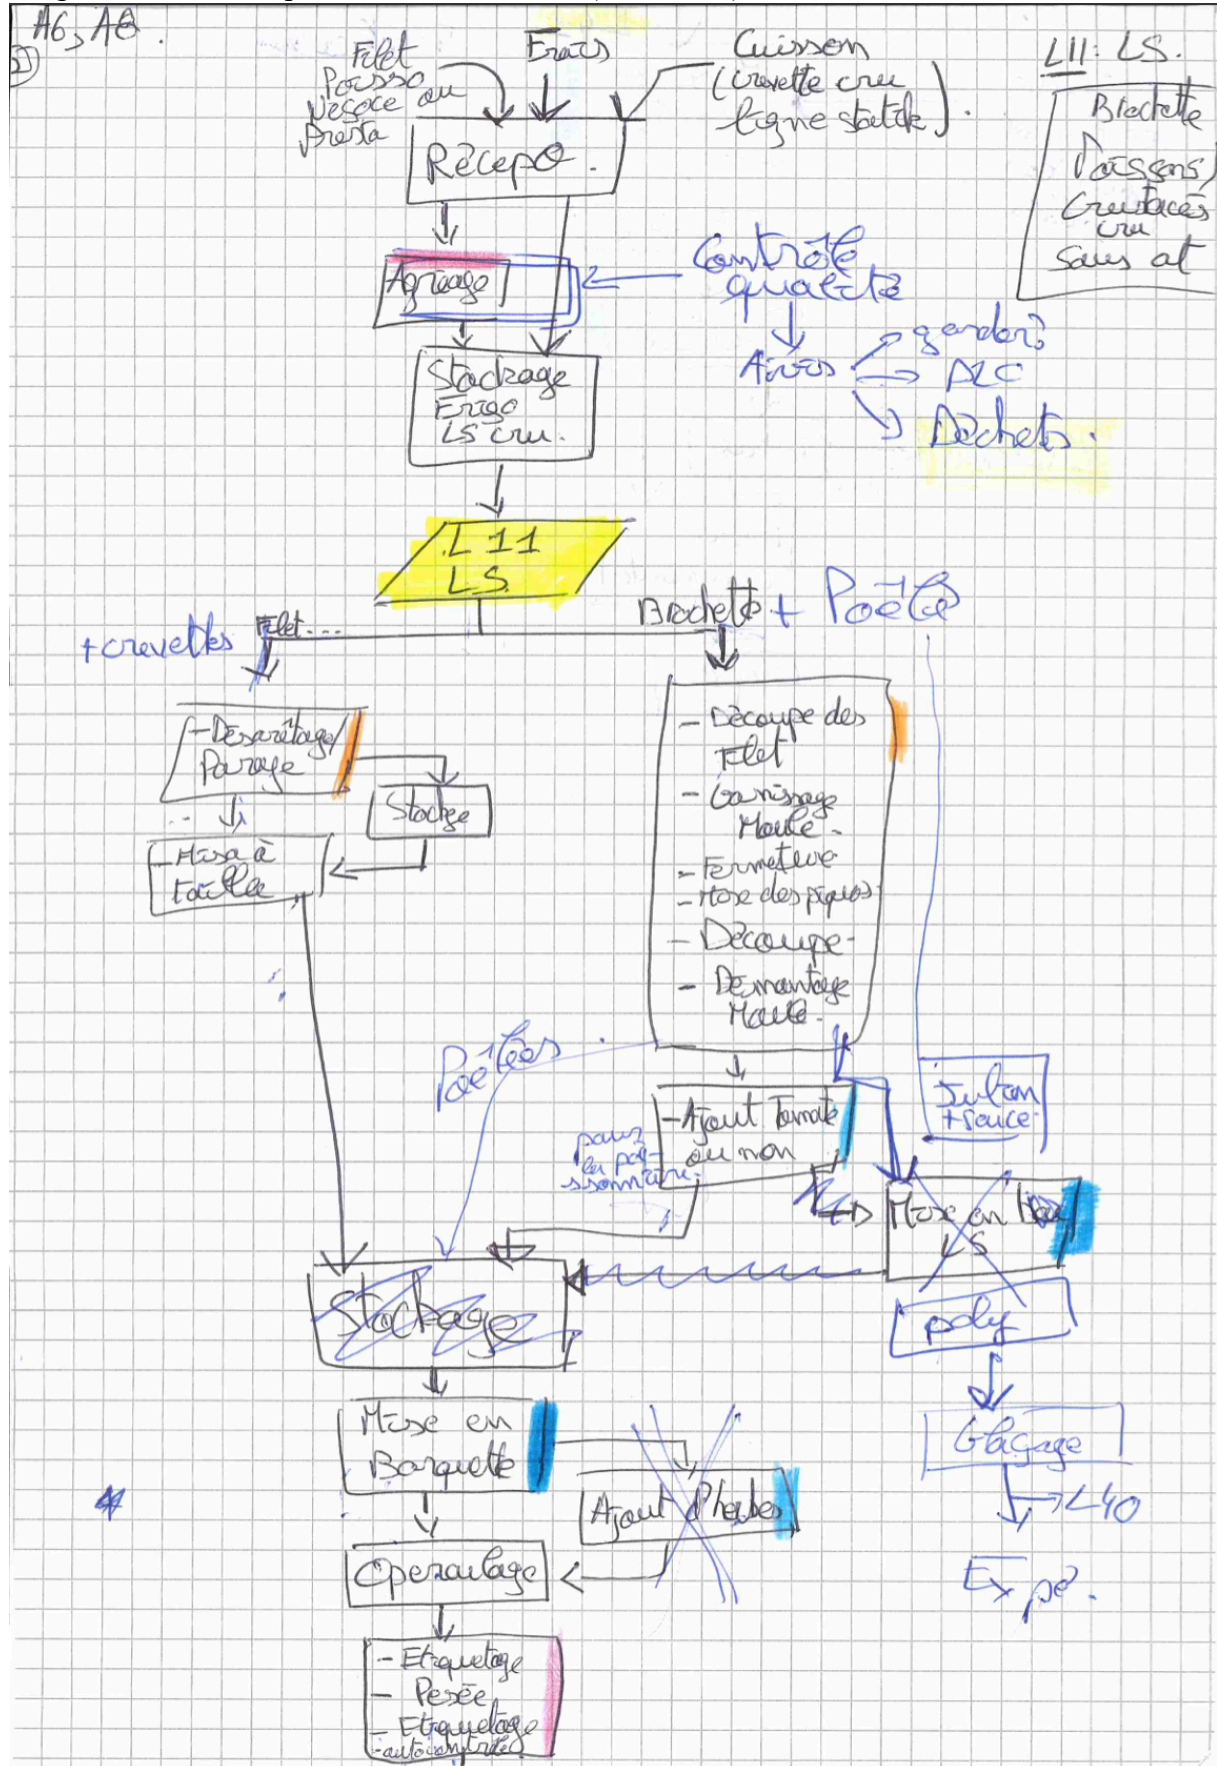 A6, A8.
Filet
Poisso
Négoce ou
Presta
Frais
Cuisson
(crevette cru
ligne statik).
L11: LS.
Brochette
Poissons,
Crustacés
cru
sans at
Récepo.
Agréage
Contrôle
qualité
Avis
garder?
DLC
Déchets.
Stockage
Frigo
LS cru.
L 11
LS
+ crevettes
Filet....
Brochette + Poêlé
- Désarêtage/
Parage
Stockage
- Mise à
taille
- Découpe des
Filet
- Garnissage
Moule.
- Fermeture
- Mise des piques
- Découpe.
- Démontage
Moule.
Poêlées
- Ajout Tomate
ou non
pour
la poi-
ssonnerie.
Julian
+ sauce
Mise en
LS
poly
Stockage
Glaçage
L40
Expé.
Mise en
Barquette
Ajout d'herbes
Operculage
- Etiquetage
- Pesée
- Etiquetage
- autocontrôle